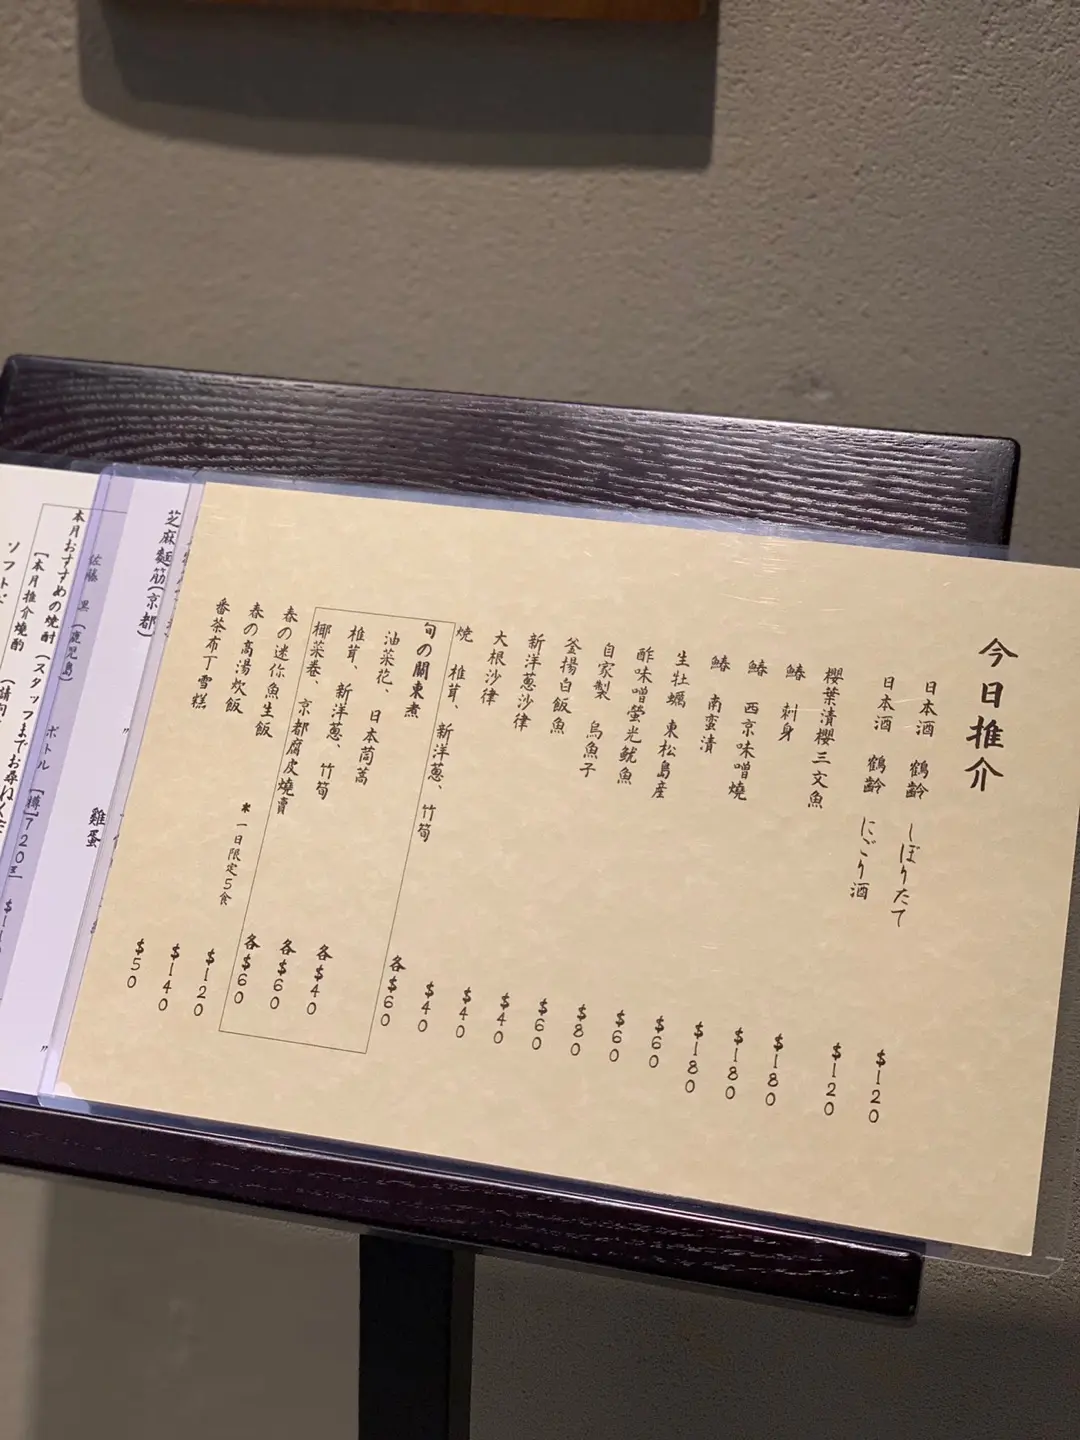 今日推介
日本酒 鶴齢 しぼりたて $120
日本酒 鶴齢 にごり酒 $120
櫻葉漬櫻三文魚 $180
鰆 刺身 $180
鰆 西京味噌燒 $180
鰆 南蛮漬 $60
生牡蠣 東松島産 $60
酢味噌螢光魷魚 $80
自家製 烏魚子 $60
釜揚白飯魚 $40
新洋葱沙律 $40
大根沙律 $40
燒 椎茸、新洋葱、竹筍 各$60
旬の關東煮
油菜花、日本茼蒿 各$40
椎茸、新洋葱、竹筍 各$60
椰菜巻、京都腐皮燒賣 各$60
春の迷你魚生飯 $120
春の高湯炊飯 *一日限定5食 $140
番茶布丁雪糕 $50
芝麻麵筋(京都)
雞蛋 〃
佐藤 黒 (鹿児島) 〃
本月おすすめの焼酎 (スタッフまでお尋ねくだ
(本月推介燒酌
ボトル [樽]720